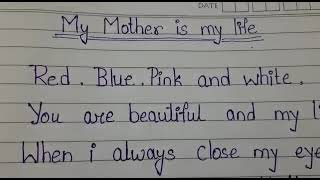 DATE
My Mother is my life
Red. Blue. Pink and white.
You are beautiful and my
When i always close my